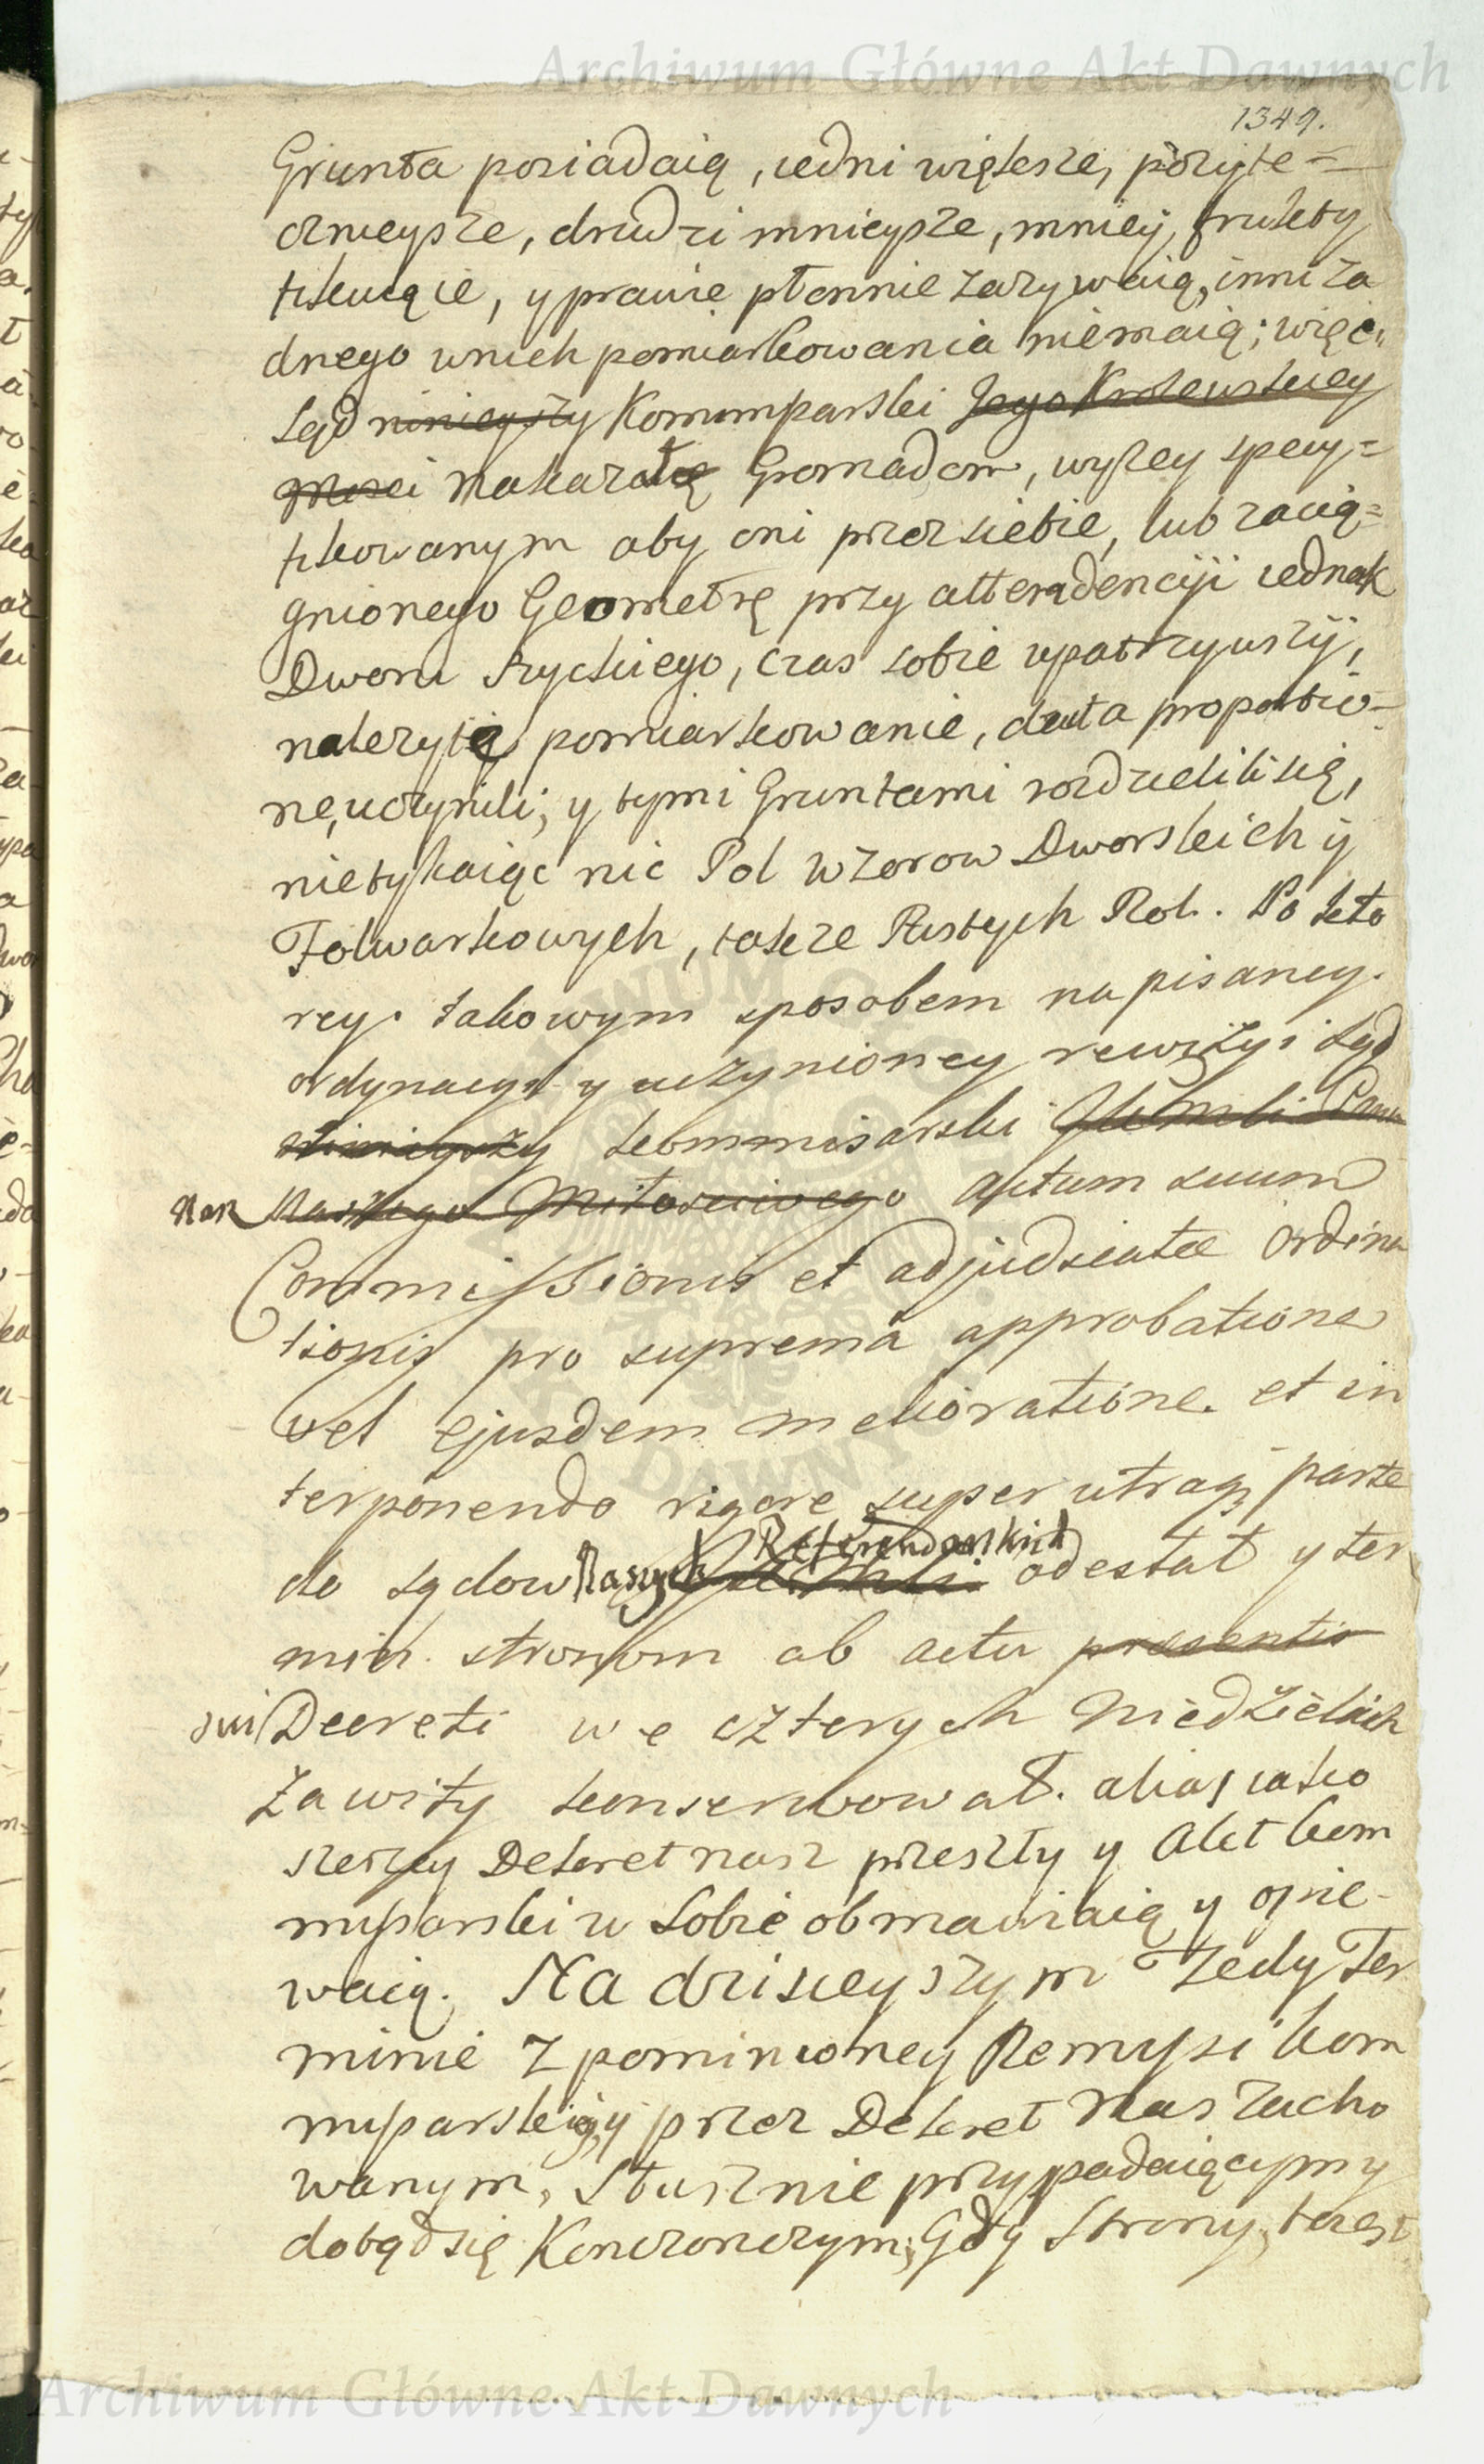 Archiwum Główne Akt Dawnych
1349.
Grunta posiadaią, iedni większe, pożyte=
cznieysze, drudzi mnieysze, mniey frukty
fikuiące, y prawie płonnie zażywaią, inni ża
dnego wnich pomiarkowania niemaią; więc
Sąd ninieyszy Kommissarski Jego Krolewskiey
Mosci nakazał Gromadom, wyżey specy=
fikowanym aby oni przez siebie, lub zacią=
gnionego Geometrę przy attendencyi iednak
Dworu Ryckiego, czas sobie upatrzywszy,
należytę pomiarkowanie, data proportio-
ne, uczynili; y tymi Gruntami rozdzielili się,
nietykaiąc nic Pol Wzorow Dworskich y
Folwarkowych, także Pustych Rol. Po kto
rey takowym sposobem napisaney
ordynacyi y uczynioney rewizyi Sąd
ninieyszy kommissarski JKMci Pana
nan Naszego Miłosciwego actum suum
Commissionis et adjudicatae Ordina
tionis pro suprema approbatione
vel ejusdem melioratione et in
terponendo rigore super utraq parte
do sądow Naszych Referendarskich JKMci odesłał y ter
min stronom ab actu praesentis
sui Decreti we czterych Niedzielach
Zawity konserwował. alias iako
szerzey Dekret nasz przeszły y Akt kom
missarski w Sobie obmawiaią y opie-
waią. Na dzisieyszym Tedy Ter
minie z pomnioney Remyssi kom
missarskiey y przez Dekret Nasz zacho
wanym, Słusznie przypadaiącym y
dotąd się Kończonczym; Gdy Strony, teraz
Archiwum Główne Akt Dawnych